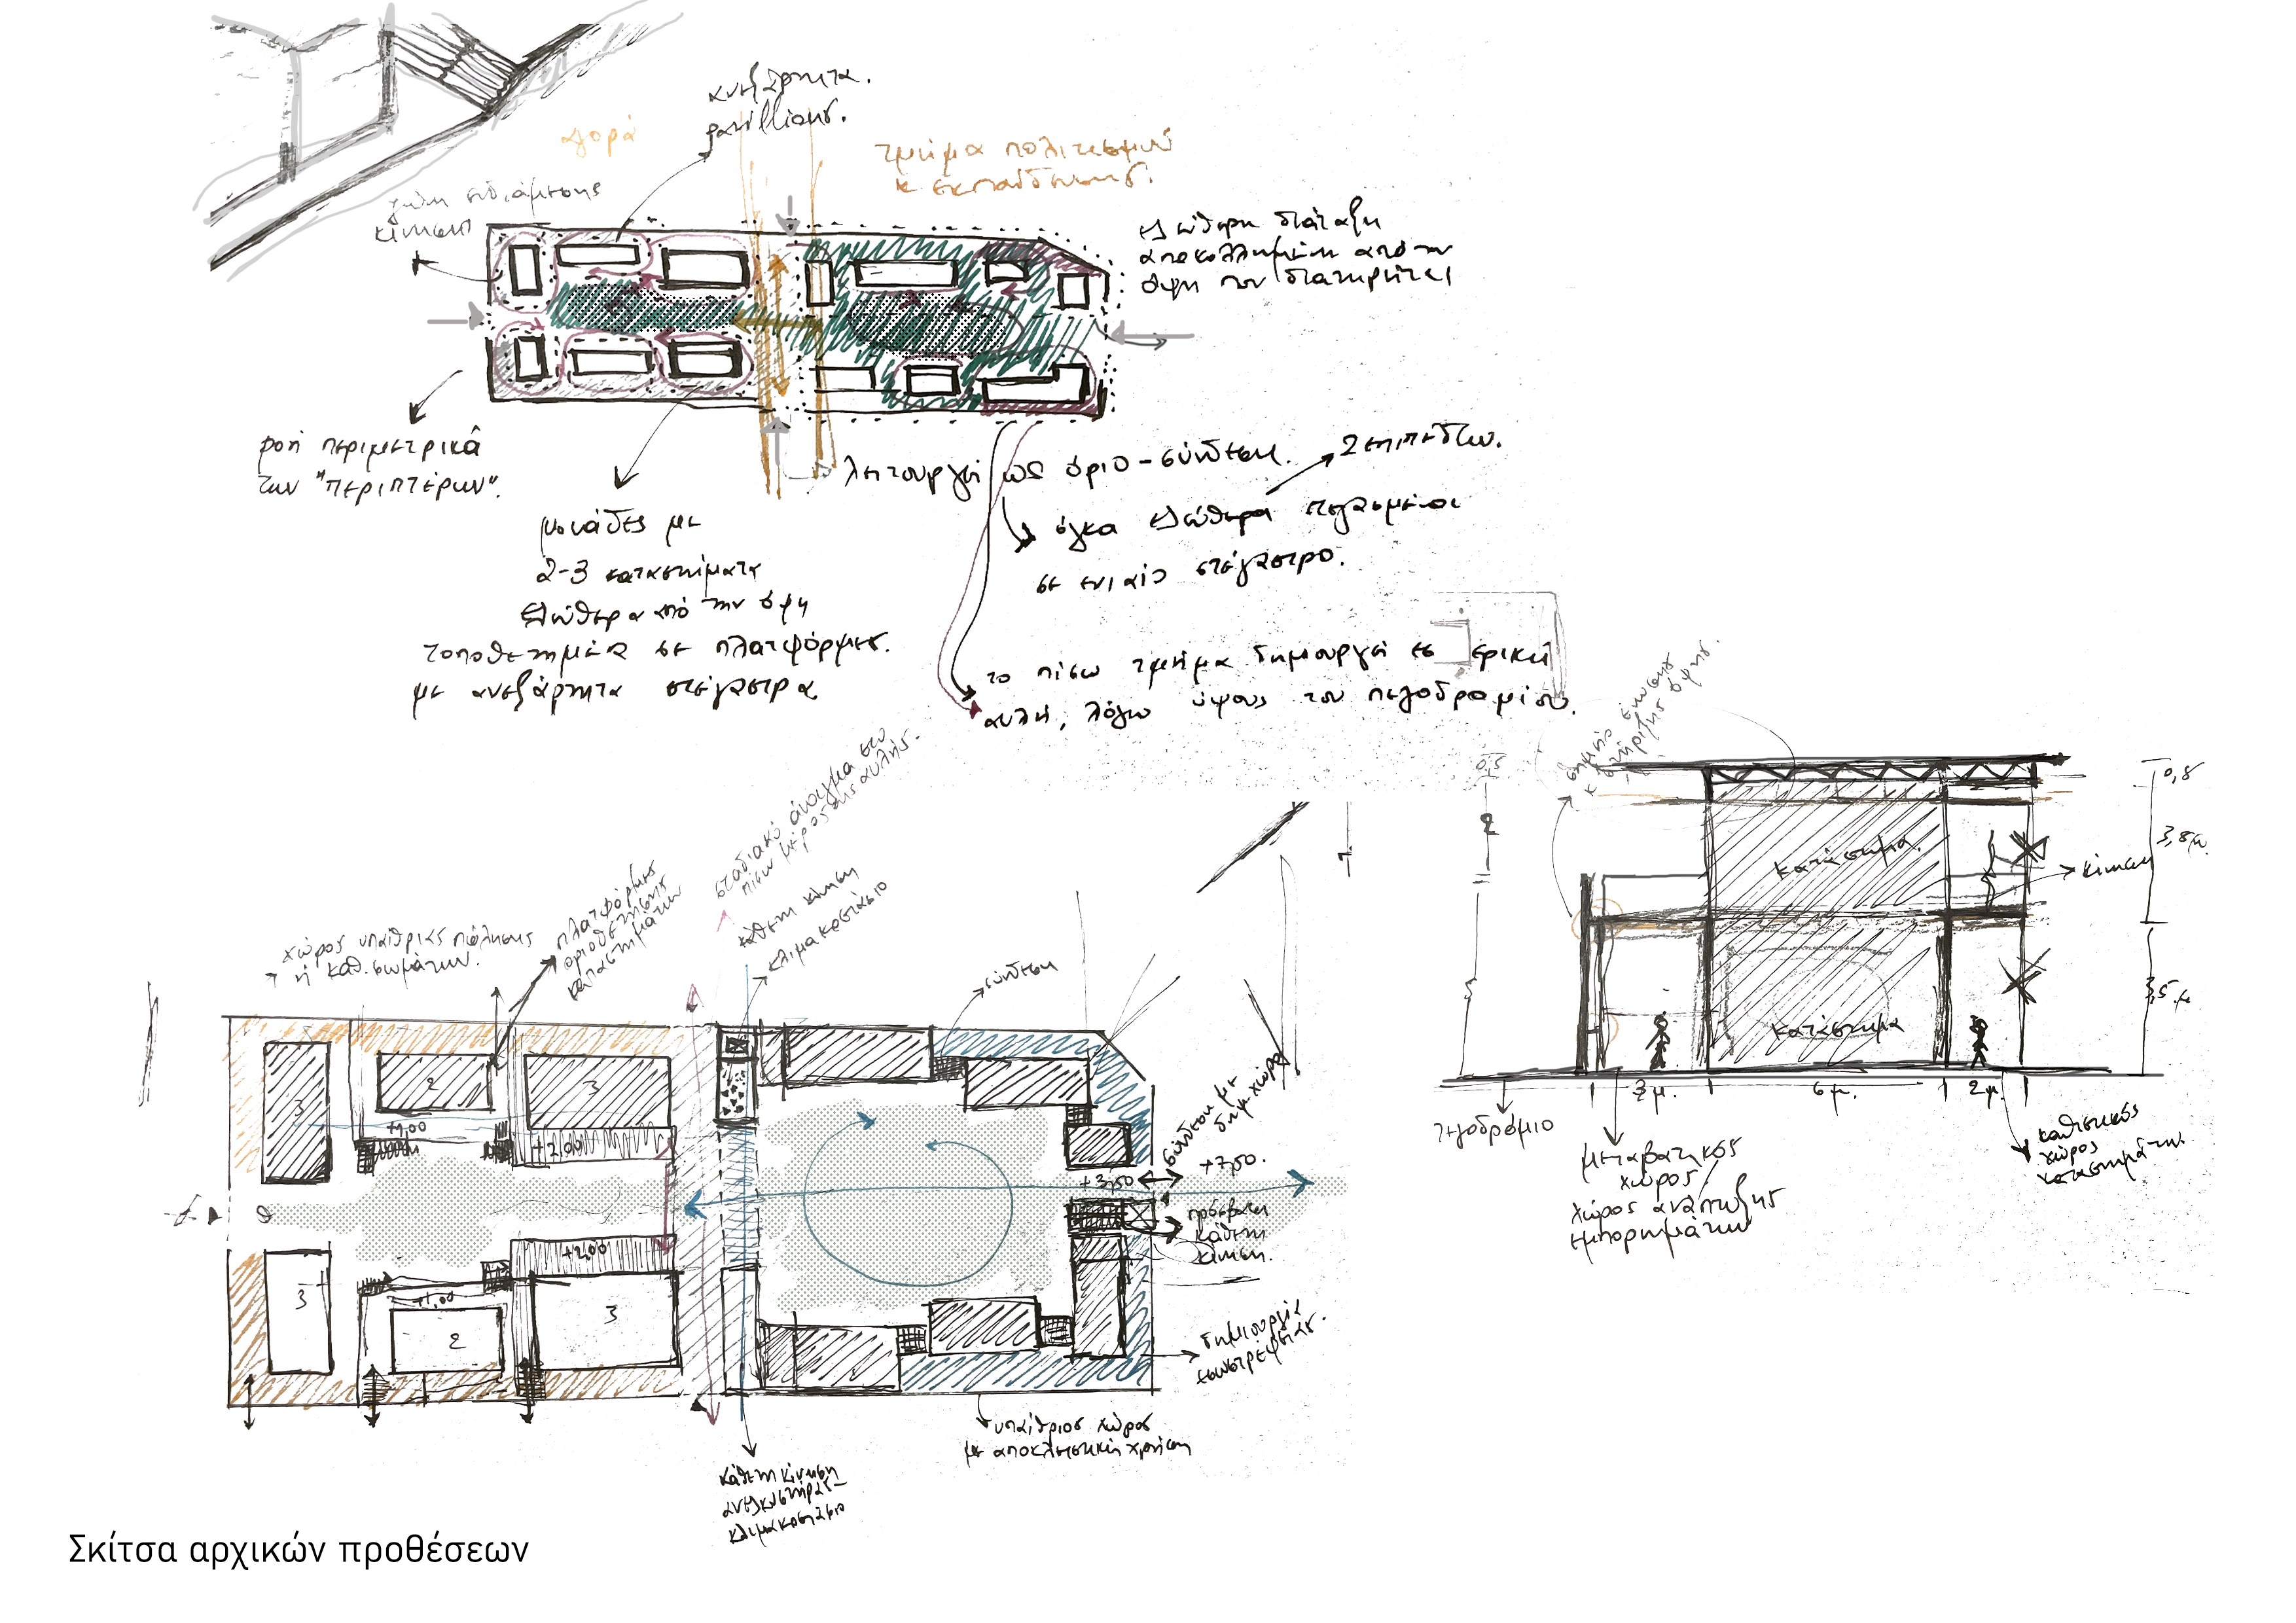 ανεξάρτητα
pavillions.
αγορά
τμήμα πολιτισμού
κ εκπαίδευσης.
ενδιάμεσης
κίνησης
ελεύθερη διάταξη
αποκολλημένη από την
όψη που διατηρείται
ροή περιμετρικά
των "περιπτέρων".
λειτουργεί ως όριο-σύνδεση.
2 επιπέδων.
όγκοι ελεύθερα
σε ενιαίο στέγαστρο.
μονάδες με
2-3 καταστήματα
ελεύθερα από την όψη
τοποθετημένα σε πλατφόρμες.
με ανεξάρτητα στέγαστρα
το πίσω τμήμα δημιουργεί εσ ερική
αυλή, λόγω ύψους του πεζοδρομίου.
σταδιακό άνοιγμα στο
πίσω μέρος της αυλής.
κάθετη κίνηση
κλιμακοστάσιο
πλατφόρμες
οριοθέτησης
καταστημάτων
χώρος υπαίθριας πώλησης
ή καθισμάτων.
σύνδεση
3
2
3
+1,00
+2,00
+2,00
+1,00
3
2
3
σύνδεση με
δημ. χώρο
+7,50.
+3,50
πρόσβαση
κάθετη
κίνηση.
δημιουργία
εσωστρέφειας.
υπαίθριος χώρος
με αποκλειστική χρήση
κάθετη κίνηση
ανελκυστήρας-
κλιμακοστάσιο
σημείο ένωσης
κ στήριξης όψης.
0,5
2
0,8
3,8μ.
3,5μ
κατάστημα.
κίνηση
κατάστημα
3μ.
6μ.
2μ.
πεζοδρόμιο
μεταβατικός
χώρος
χώρος ανάπτυξης
εμπορευμάτων
καθιστικός
χώρος
καταστημάτων.
Σκίτσα αρχικών προθέσεων